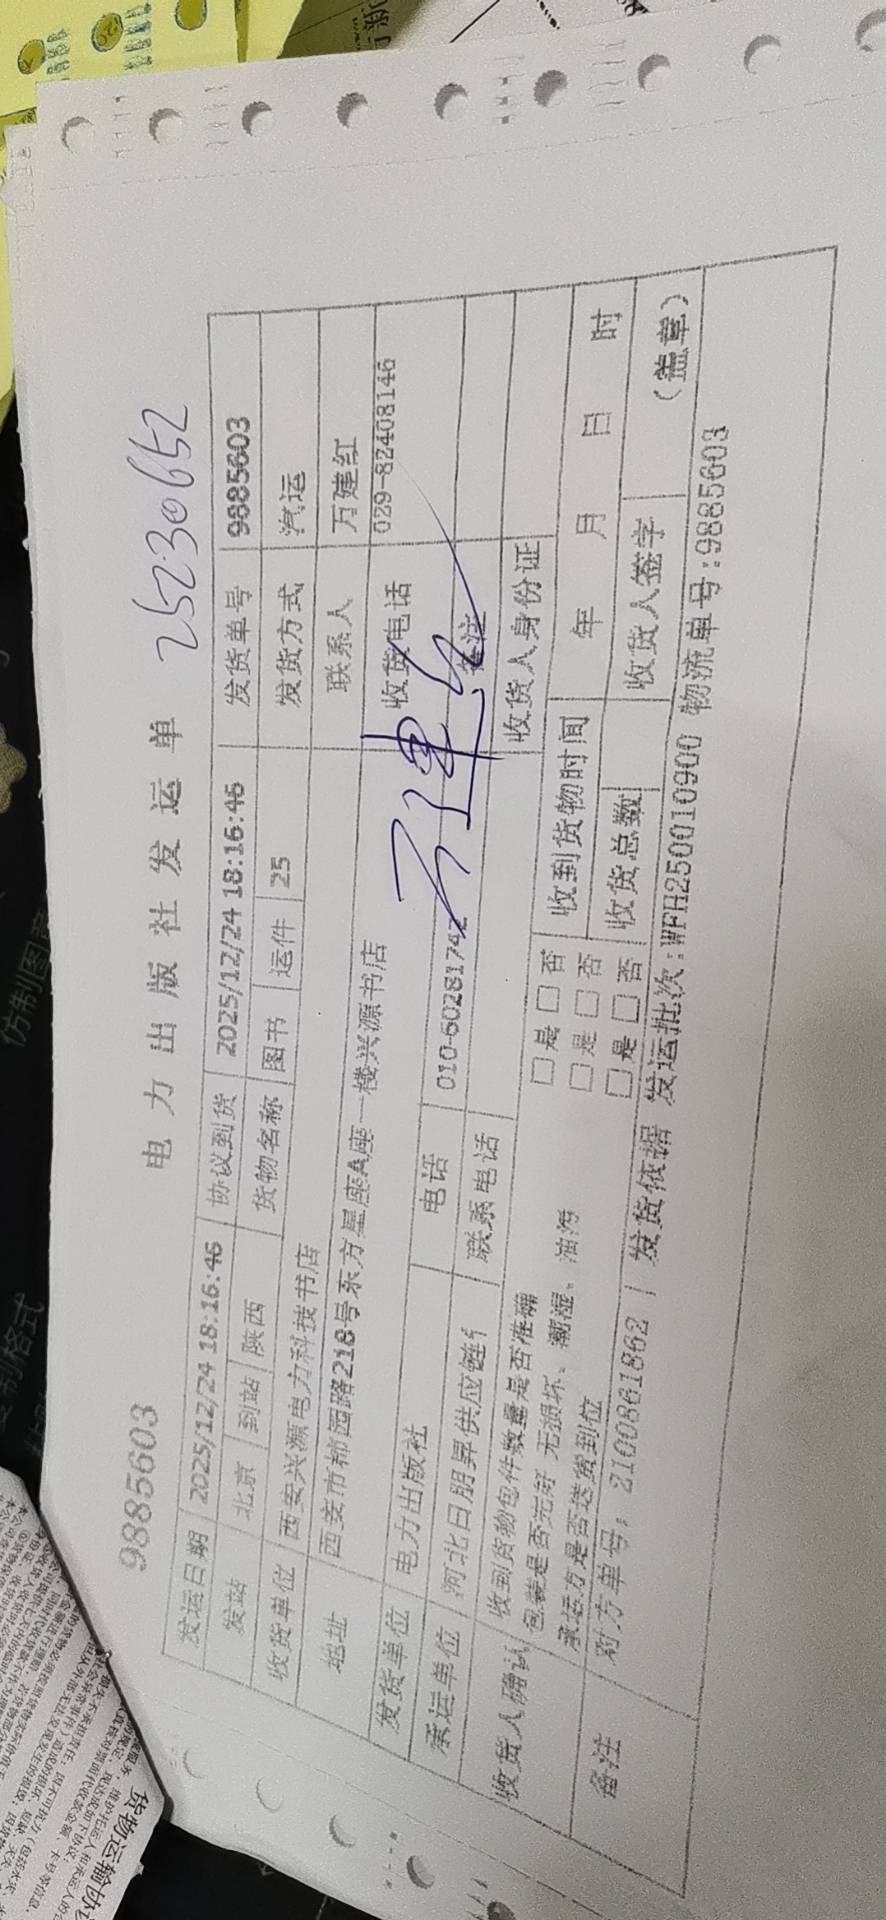 9885603
电力出版社发运单
25230652
发运日期 2025/12/24 18:16:46 协议到货 2025/12/24 18:16:46 发货单号 9885603
发站 北京 到站 陕西 货物名称 图书 运件 25 发货方式 汽运
收货单位 西安兴源电力科技书店 联系人 万建红
地址 西安市郗园路218号东方星座A座一楼兴源书店 收货电话 029-82408146
发货单位 电力出版社 电话 010-60281742 备注
承运单位 河北日朋昇供应链 联系电话 收货人身份证
万建红
收货人确认 收到货物包件数量是否准确 □是□否 收到货物时间 年 月 日 时
包装是否完好 无损坏、潮湿、油污 □是□否
承运方是否送货到位 □是□否 收货总数 收货人签字 (盖章)
备注 对方单号: 2100861862 | 发货依据 发运批次:WFH250010900 物流单号:9885603
货物运输协议